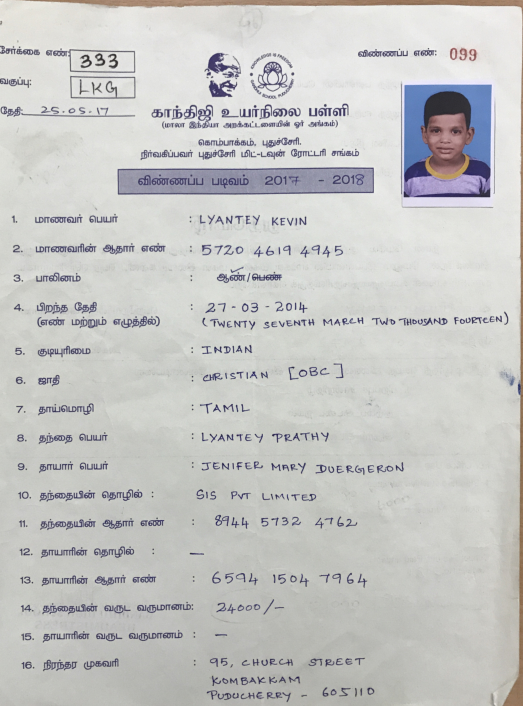 சேர்க்கை எண்: 333
விண்ணப்ப எண்: 099
வகுப்பு: LKG
தேதி: 25.05.17
காந்திஜி உயர்நிலை பள்ளி
(மாலா இந்தியா அறக்கட்டளையின் ஓர் அங்கம்)
கொம்பாக்கம், புதுச்சேரி.
நிர்வகிப்பவர் புதுச்சேரி மிட்-டவுன் ரோட்டரி சங்கம்
விண்ணப்ப படிவம் 2017 - 2018
1. மாணவர் பெயர் : LYANTEY KEVIN
2. மாணவரின் ஆதார் எண் : 5720 4619 4945
3. பாலினம் : ஆண்/பெண்
4. பிறந்த தேதி : 27-03-2014
(எண் மற்றும் எழுத்தில்) (TWENTY SEVENTH MARCH TWO THOUSAND FOURTEEN)
5. குடியுரிமை : INDIAN
6. ஜாதி : CHRISTIAN [OBC]
7. தாய்மொழி : TAMIL
8. தந்தை பெயர் : LYANTEY PRATHY
9. தாயார் பெயர் : JENIFER MARY DUERGERON
10. தந்தையின் தொழில் : SIS PVT LIMITED
11. தந்தையின் ஆதார் எண் : 8944 5732 4762
12. தாயாரின் தொழில் : —
13. தாயாரின் ஆதார் எண் : 6594 1504 7964
14. தந்தையின் வருட வருமானம்: 24000/-
15. தாயாரின் வருட வருமானம் : —
16. நிரந்தர முகவரி : 95, CHURCH STREET
KOMBAKKAM
PUDUCHERRY - 605110